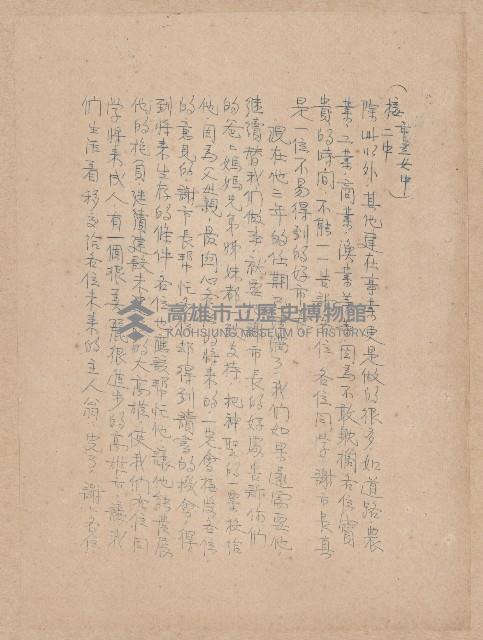 (接市立女中
二中)
除此以外其他建在事業更是做的很多如道路農
業、工業、商業、漁業等等因為不敢耽擱各位寶
貴的時間,不能一一告訴各位,各位同學,謝市長真
是一位不易得到的好市
現在他三年的任期 滿了,我們如果還需要他
繼續替我們做事,就要 市長的好處告訴你們
的爸爸媽媽兄弟姊妹都 支持,把神聖的一票投給
他,因為父母親最內心 的將來的一定會接受各位
的意見的,謝市長幫忙 都得到讀書的機會得
到將來生存的條件,各位也應該幫忙他,讓他能發展
他的抱負,繼續建設未 的大高雄,使我們各位同
學將來成人有一個很美麗很進步的高雄市,讓我
們生活着移交給各位未來的主人翁,完了,謝謝各位
高雄市立歷史博物館
KAOHSIUNG MUSEUM OF HISTORY